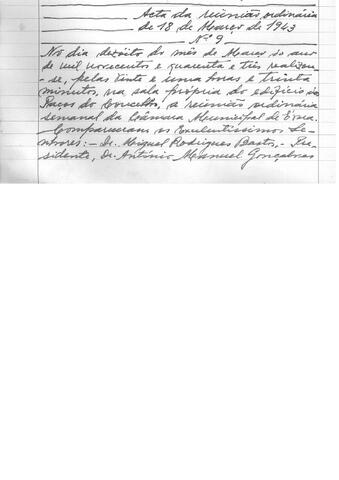 Acta da reünião ordinária
de 18 de Março de 1943
Nº 9
No dia dezoito do mês de Março do ano
de mil novecentos e quarenta e três realizou-
-se, pelas vinte e uma horas e trinta
minutos, na sala própria do edifício dos
Paços do Concelho, a reünião ordinária
semanal da Câmara Municipal de
- Compareceram os Excelentíssimos Se-
nhores: - Dr. Miguel Rodrigues Bastos, - Pre-
sidente, Dr. António Manuel Gonçalves